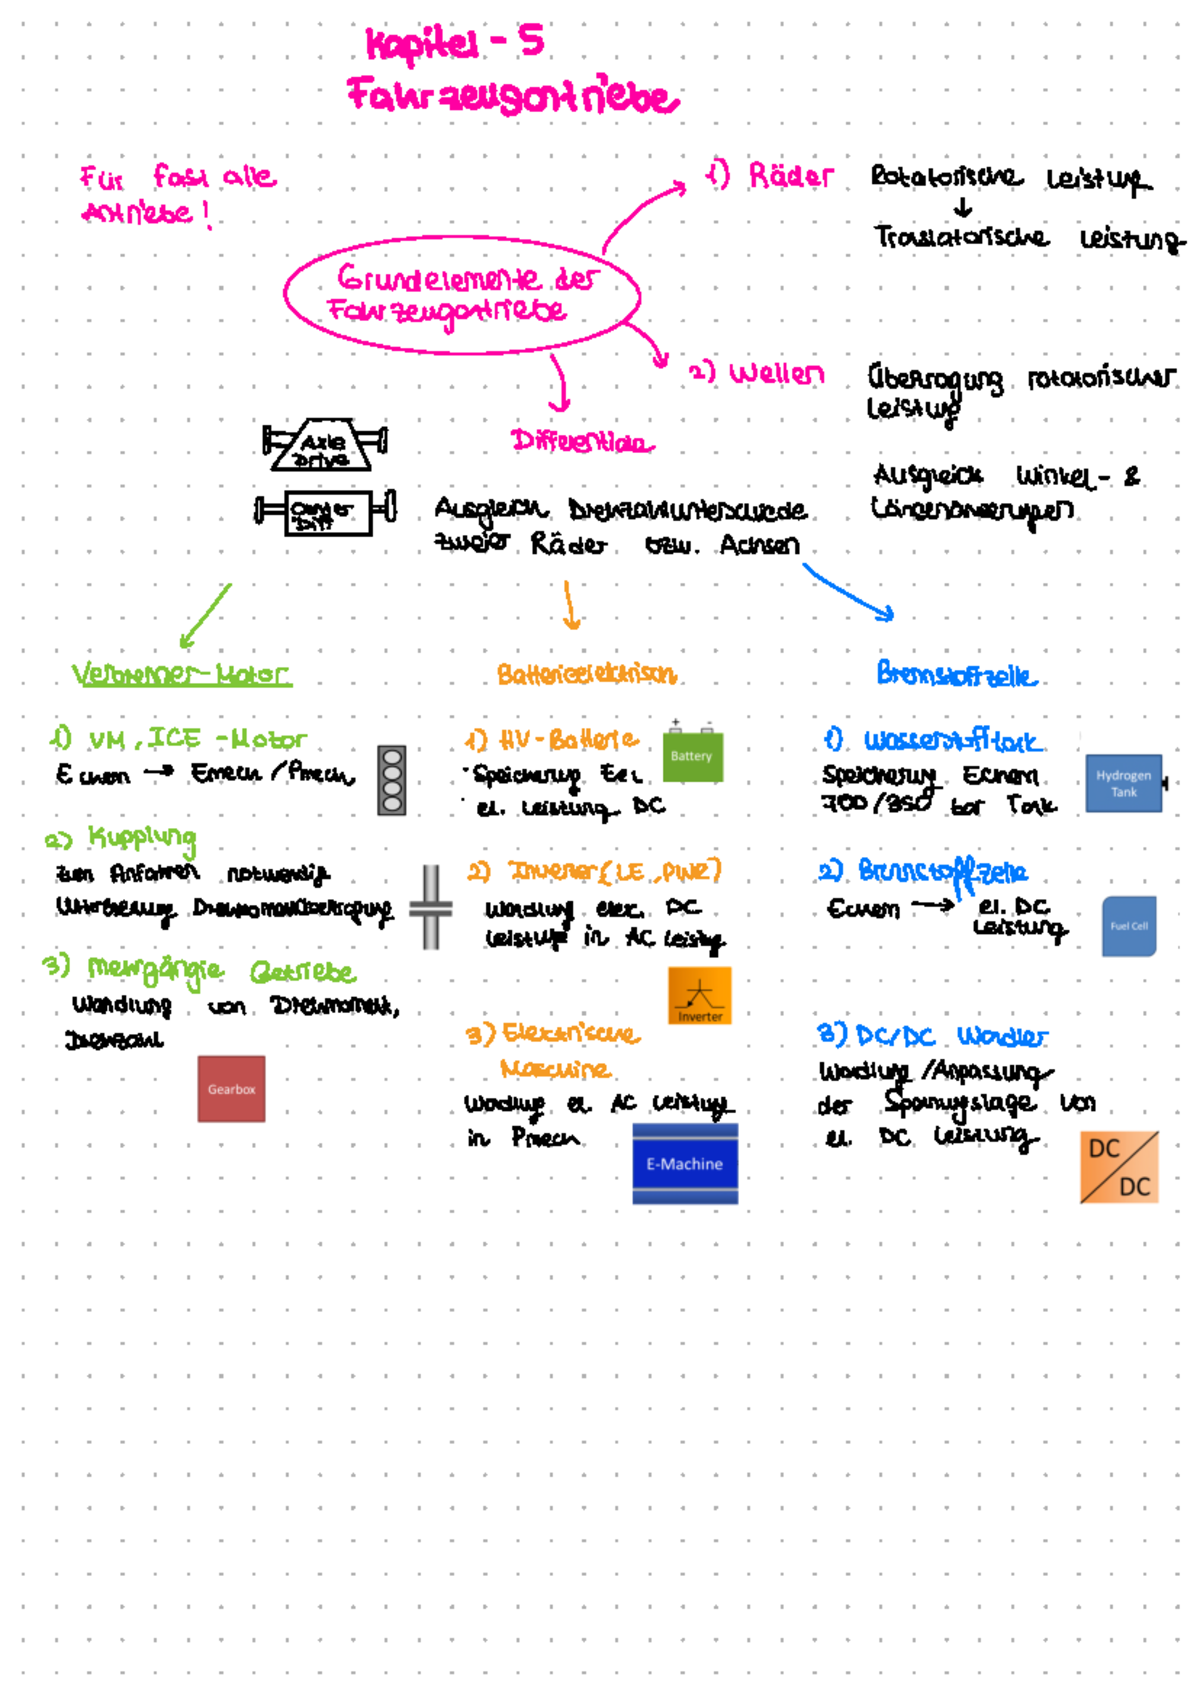 Kapitel - 5
Fahrzeugantriebe
Für fast alle
Antriebe!
Grundelemente der
Fahrzeugantriebe
1) Räder
Rotatorische Leistung
Translatorische Leistung
2) Wellen
Übertragung rotatorischer
Leistung
Ausgleich Winkel- &
Längenänderungen
Differentiale
Axle
Drive
Center
Diff
Ausgleich Drehzahlunterschiede
zweier Räder bzw. Achsen
Verbrenner-Motor
1) VM, ICE - Motor
Echem → Emech / Pmech
2) Kupplung
zum Anfahren notwendig
Unterbrechung Drehmomentübertragung
3) mehrgängie Getriebe
Wandlung von Drehmoment,
Drehzahl
Gearbox
Batterieelektrisch
1) HV-Batterie
· Speicherung Eel
· el. Leistung DC
+ -
Battery
2) Inverter (LE, PWR)
Wandlung elec. DC
Leistung in AC Leistg
Inverter
3) Elektrische
Maschine
Wandlung el. AC Leistung
in Pmech
E-Machine
Brennstoffzelle
1) Wasserstofftank
Speicherung Echem
700/350 bar Tank
Hydrogen
Tank
2) Brennstoffzelle
Echem → el. DC
Leistung
Fuel Cell
3) DC/DC Wandler
Wandlung / Anpassung
der Spannungslage von
el. DC Leistung
DC
DC